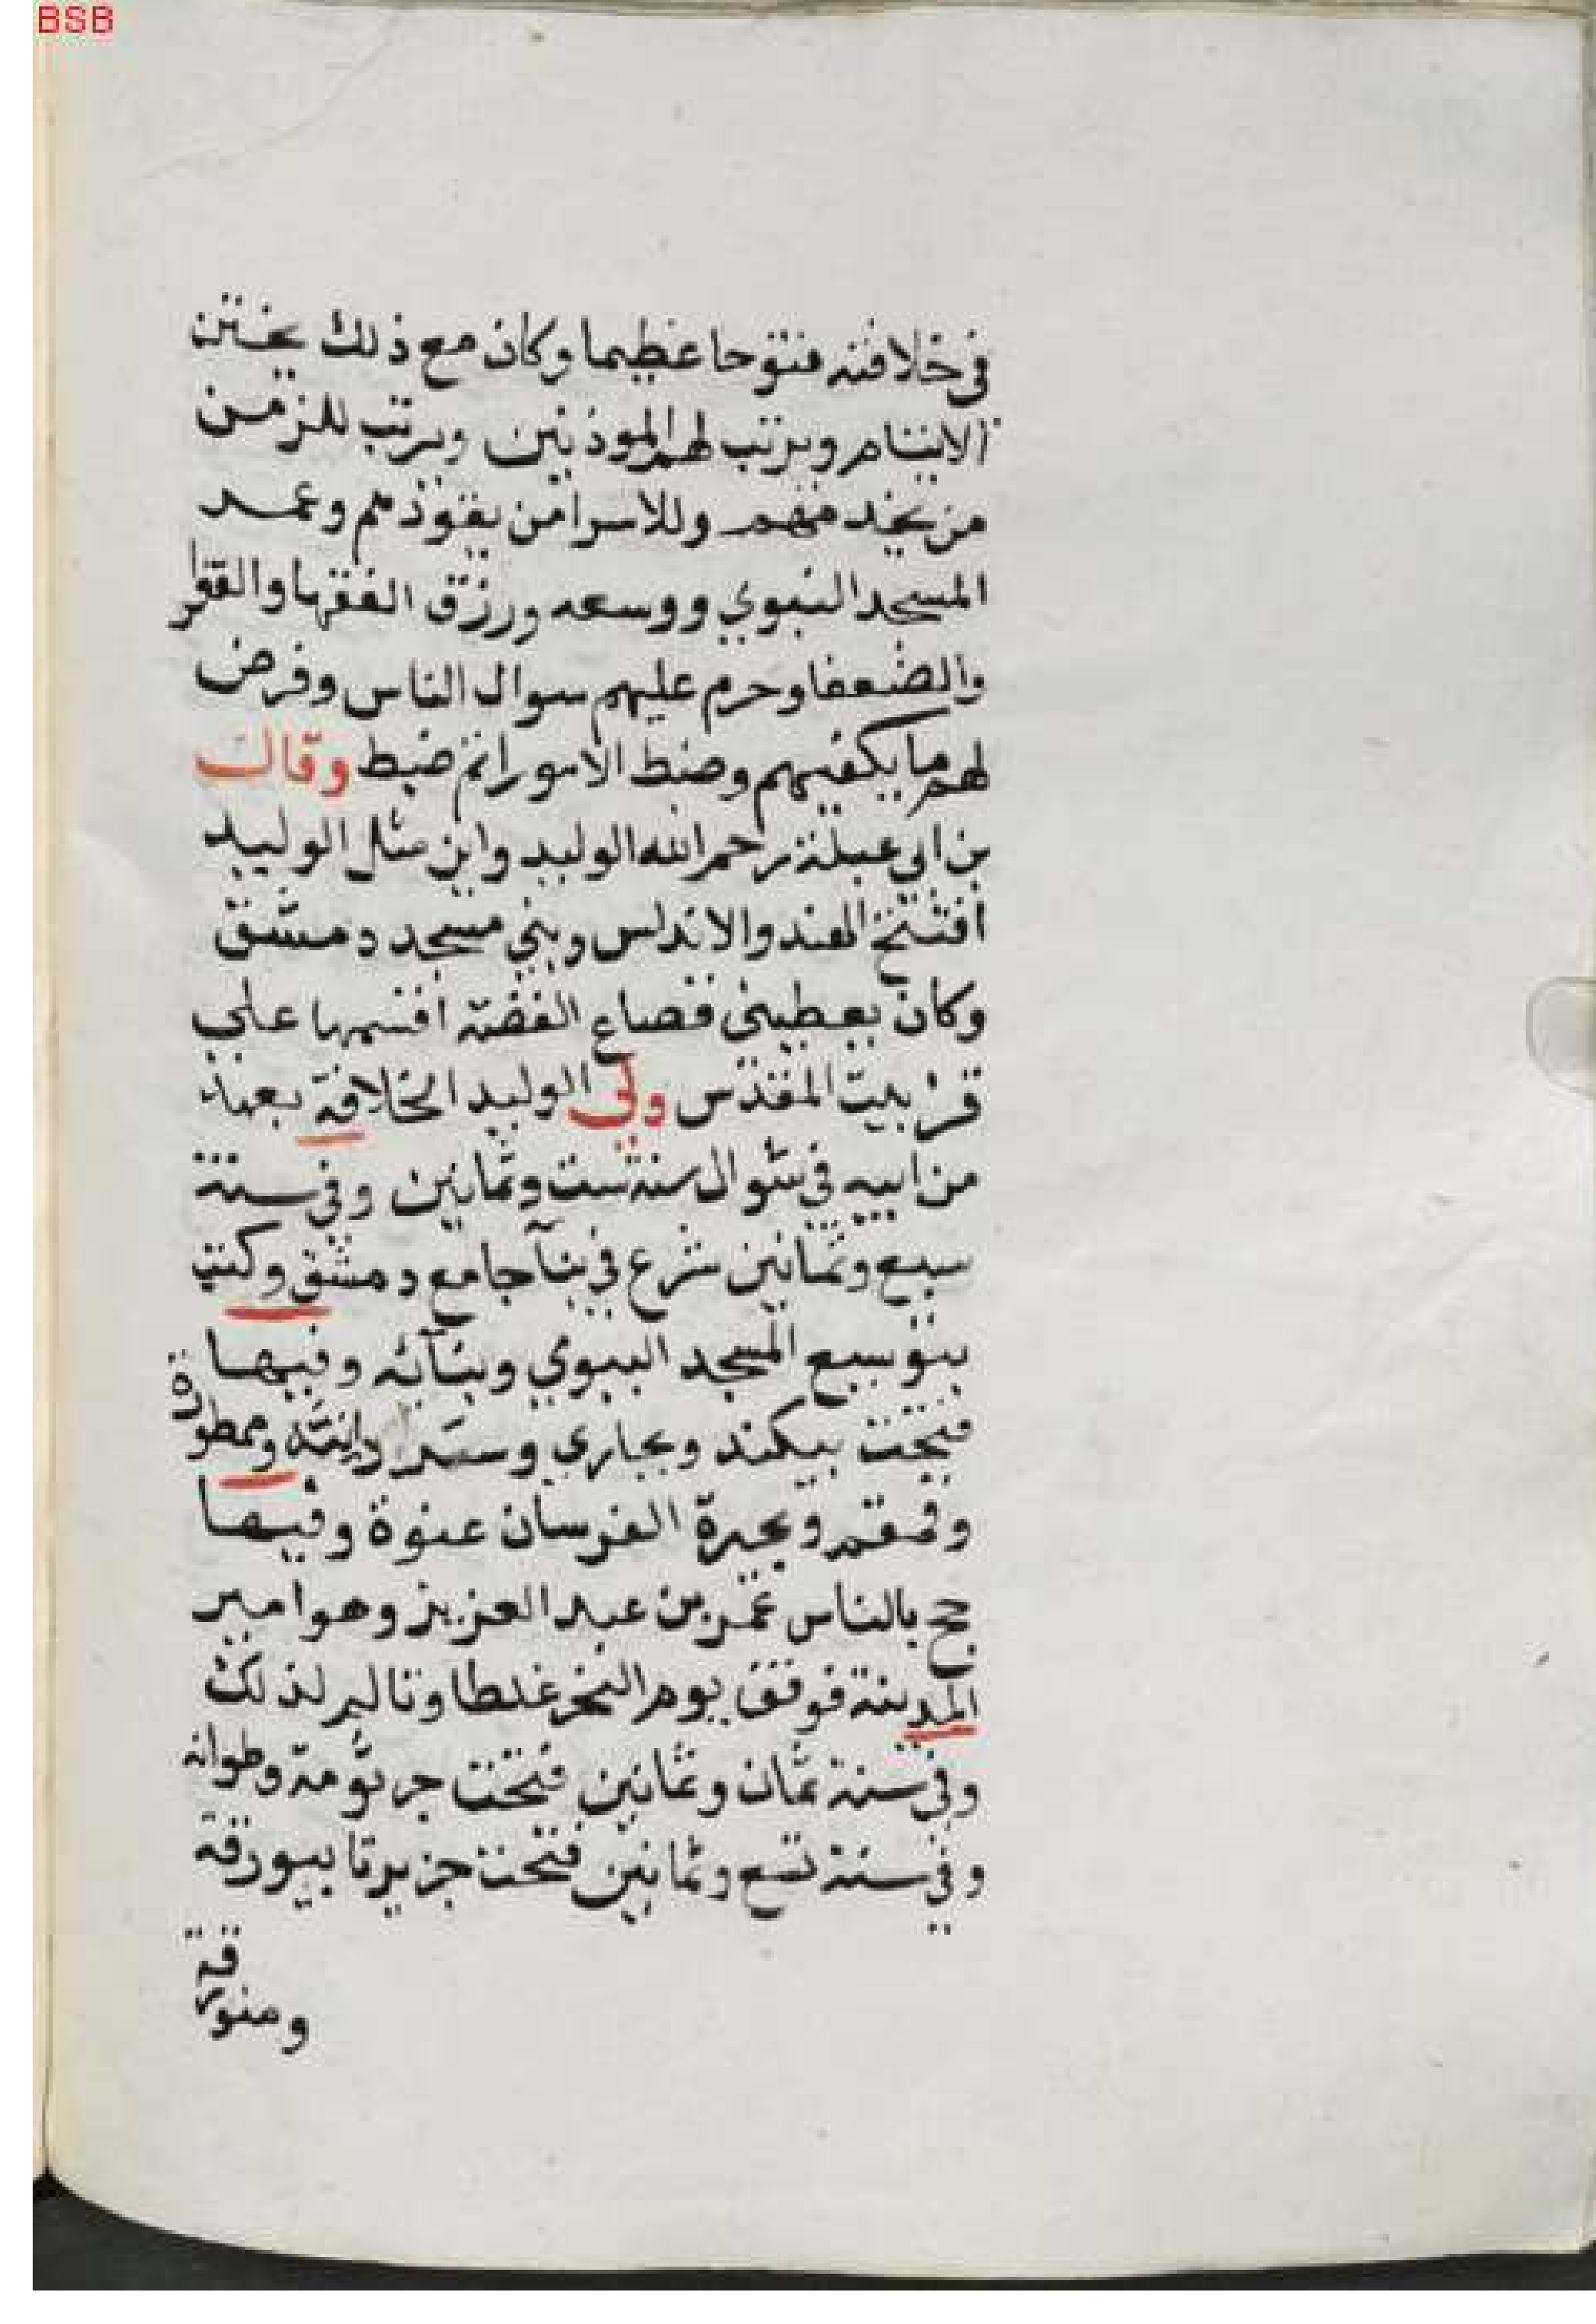 BSB
في خلافته فتوحا عظيما وكان مع ذلك يختن
الايتام ويرتب لهم المودبين ويرتب للزمن
من يخدمهم وللاسرا من يقودهم وعمر
المسجد النبوي ووسعه ورزق الفقها والفقرا
والضعفا وحرم عليهم سوال الناس وفرض
لهم ما يكفيهم وضبط الامور اتم ضبط وقال
بن ابي عبلة رحم الله الوليد واين مثل الوليد
افتتح الهند والاندلس وبني مسجد دمشق
وكان يعطيني قصاع الفضة اقسمها علي
قر بيت المقدس ولي الوليد الخلافة بعهد
من ابيه في شوال سنة ست وثمانين وفي سنة
سبع وثمانين شرع في بنآ جامع دمشق وكتب
بتوسيع المسجد النبوي وبنآئه وفيها
فتحت بيكند وبخاري وسردانية ومطورة
وقمقم وبحيرة الفرسان عنوة وفيها
حج بالناس عمر بن عبد العزيز وهو امير
المدينة فوقف يوم النحر غلطا وتالم لذلك
وفي سنة ثمان وثمانين فتحت جرثومة وطوانه
وفي سنة تسع وثمانين فتحت جزيرتا بيورقة
ومنورقة